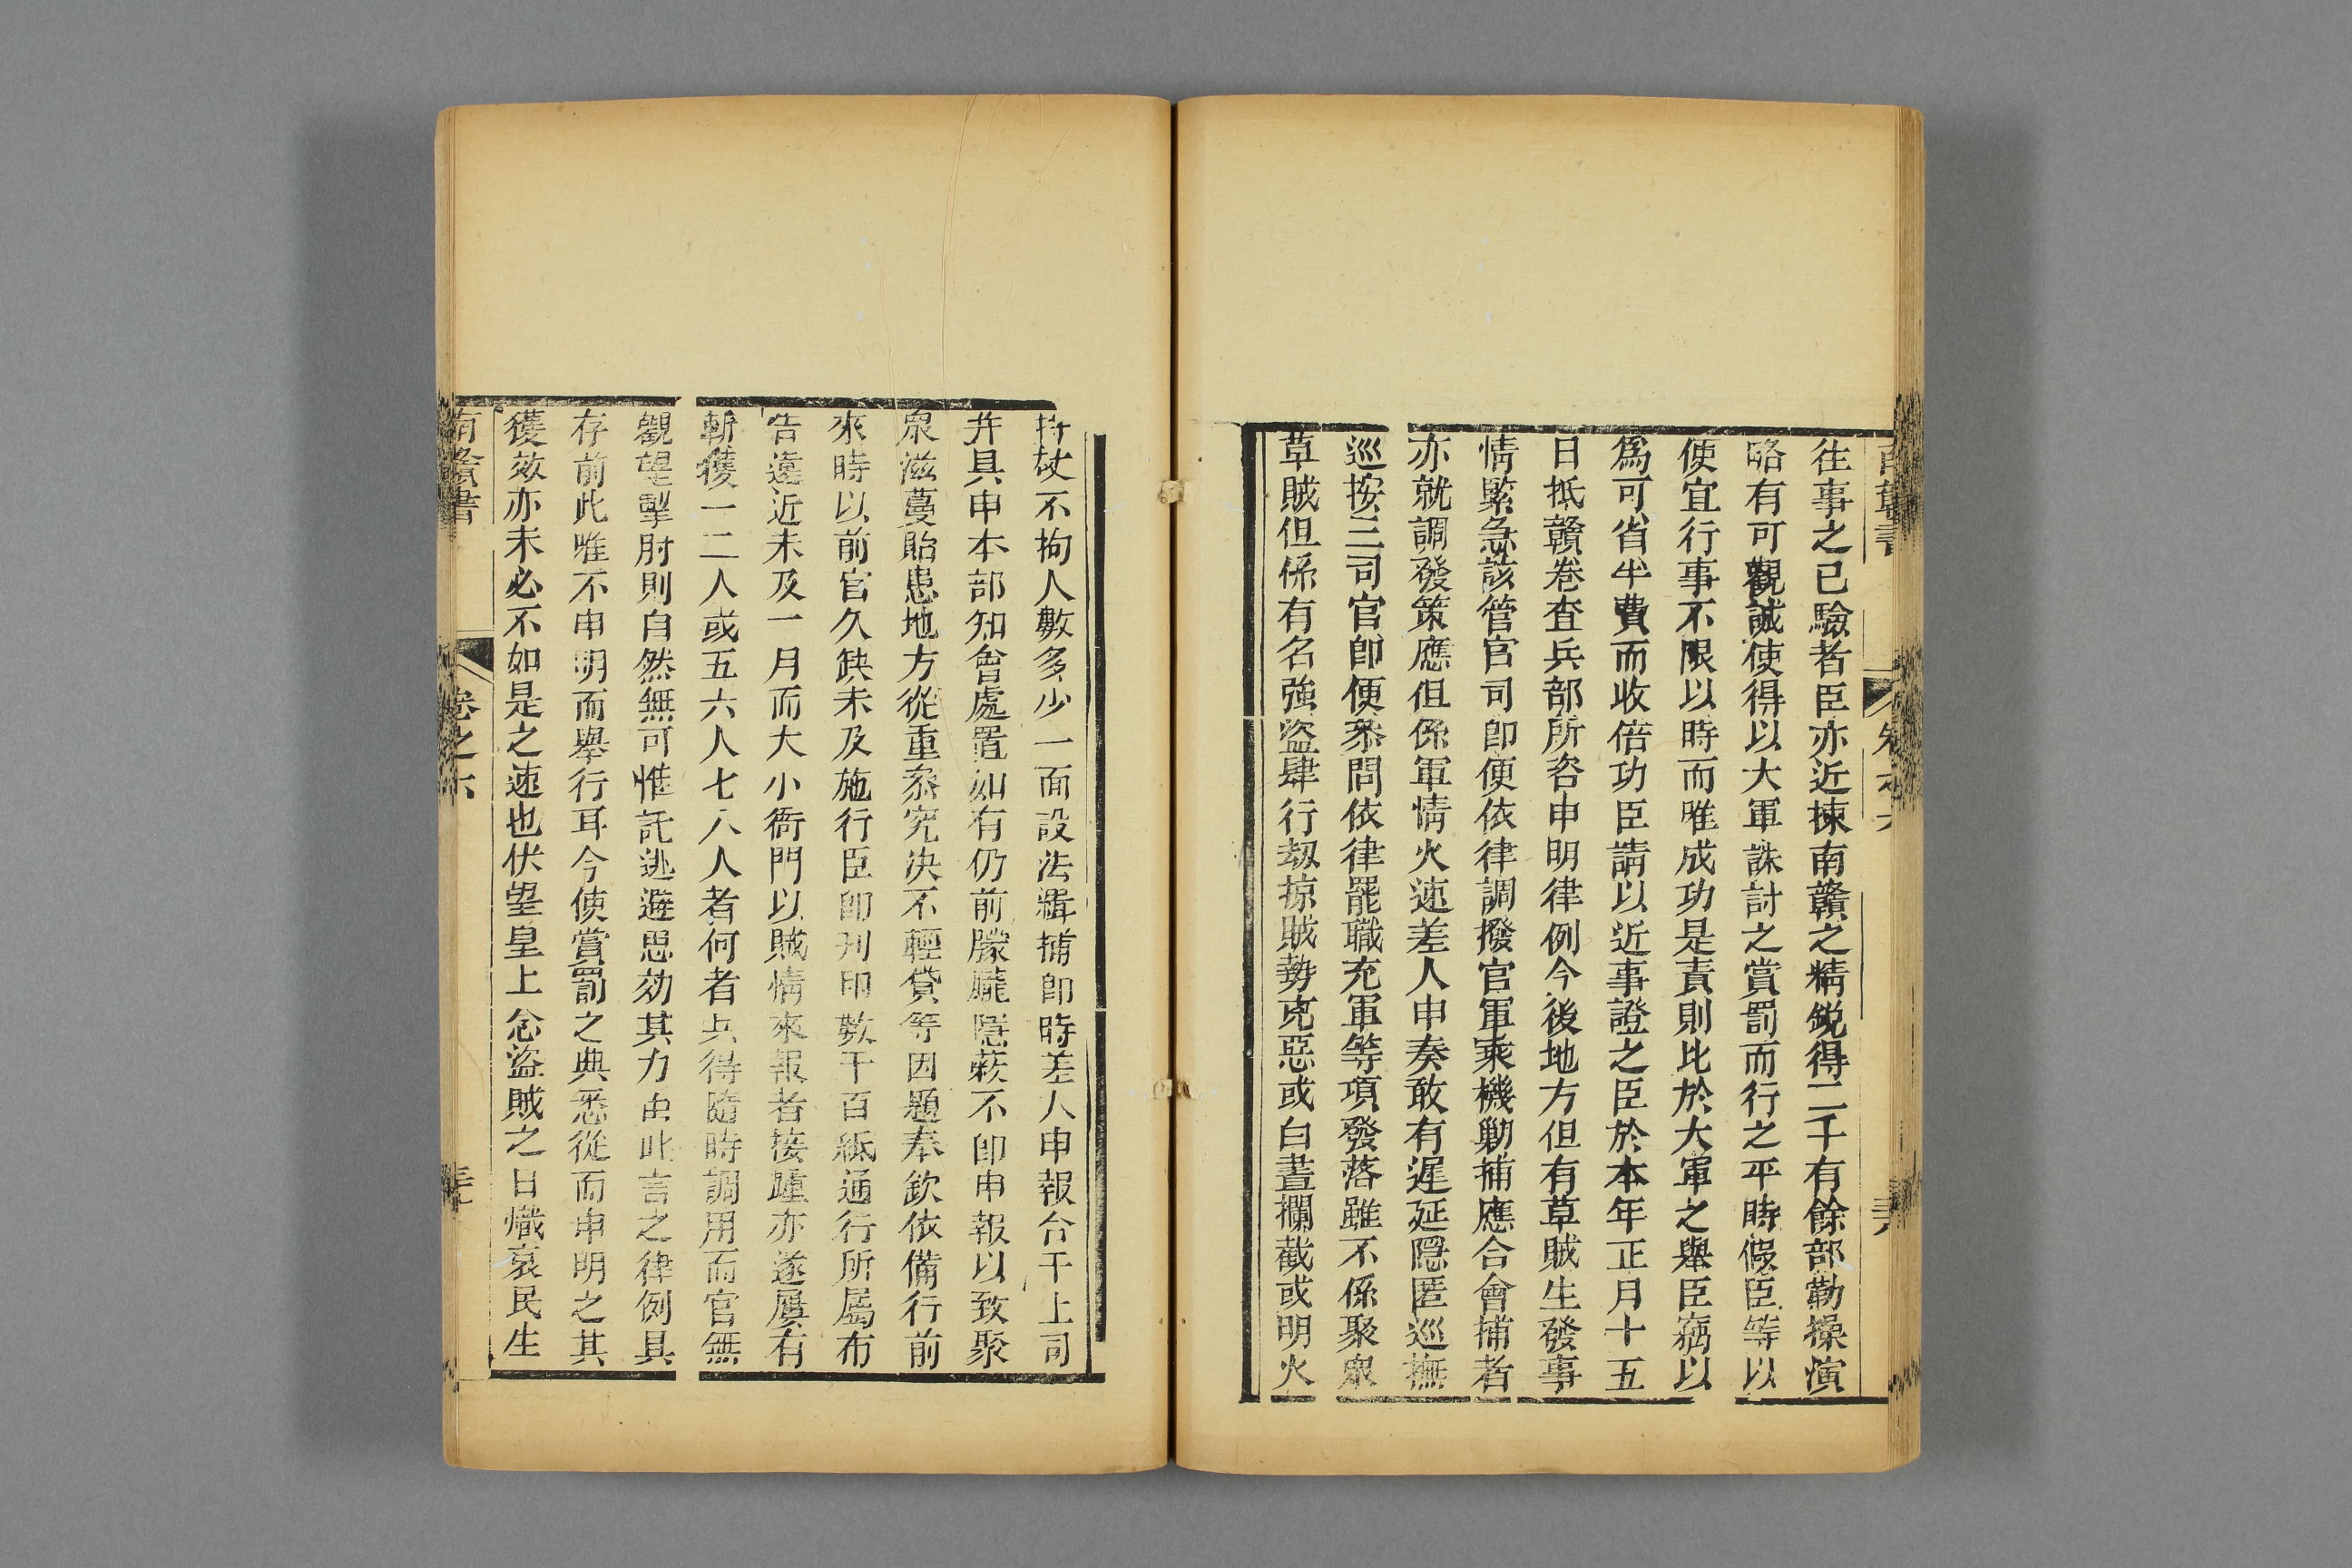 往事之已驗者臣亦近揀南贛之精銳得二千有餘部勒操演
略有可觀誠使得以大軍誅討之賞罰而行之平時假臣等以
便宜行事不限以時而唯成功是責則比於大軍之舉臣竊以
爲可省半費而收倍功臣請以近事證之臣於本年正月十五
日抵贛卷查兵部所咨申明律例今後地方但有草賊生發事
情緊急該管官司卽便依律調撥官軍乘機勦捕應合會捕者
亦就調發策應但係軍情火速差人申奏敢有遲延隱匿巡撫
巡按三司官卽便叅問依律罷職充軍等項發落雖不係聚衆
草賊但係有名強盜肆行刼掠賊勢兇惡或白晝攔截或明火
持杖不拘人數多少一面設法緝捕卽時差人申報合干上司
幷具申本部知會處置如有仍前朦朧隱蔽不卽申報以致聚
衆滋蔓貽患地方從重叅究決不輕貸等因題奉欽依備行前
來時以前官久缺未及施行臣卽刋印數千百紙通行所屬布
告遠近未及一月而大小衙門以賊情來報者接踵亦遂屢有
斬獲一二人或五六人七八人者何者兵得隨時調用而官無
觀望掣肘則自然無可惟託逃避思効其力由此言之律例具
存前此唯不申明而舉行耳今使賞罰之典悉從而申明之其
獲效亦未必不如是之速也伏望皇上念盜賊之日熾哀民生
卷之六